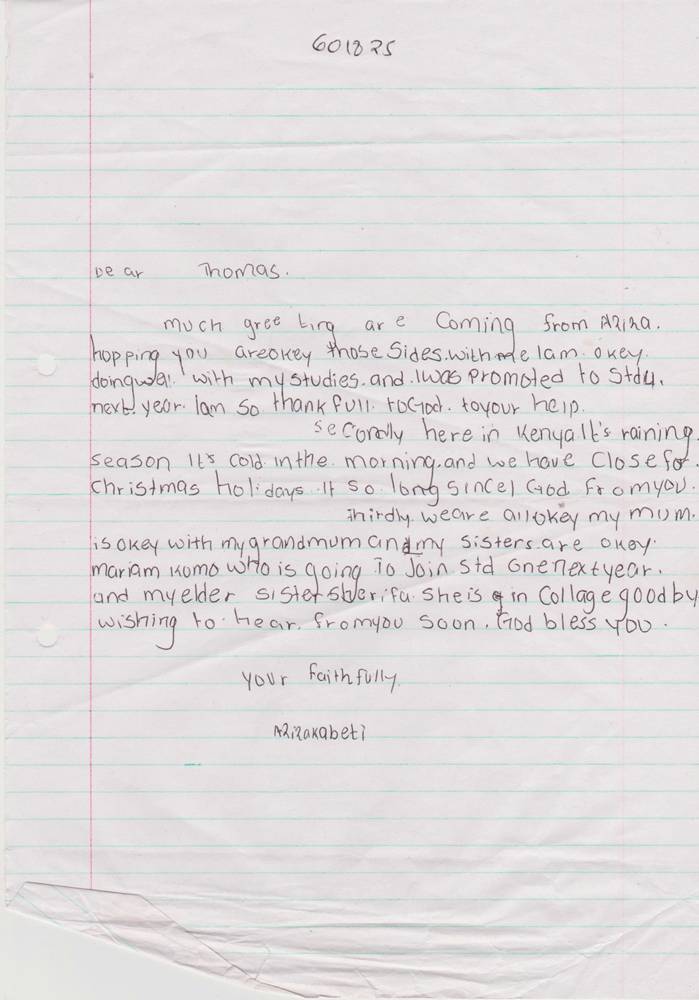 601825
Dear Thomas.
much greeting are Coming from Aziza.
hopping you are okey those Sides. with me Iam. okey.
doing wel. with my studies. and. I was Promoted to Std4.
next year. Iam so thank full. to God. to your help.
secondly here in Kenya It's raining.
season It's cold. in the morning. and we have Close for.
Christmas holidays. It so long since I God from you.
Thirdly. we are all okey my mum.
is okey with my grandmum and my sisters. are okey.
mariam Komo who is going To Join Std One next year.
and my elder sister Sherifa. she is in Collage good by
wishing to hear. from you soon. God bless YOU.
your faithfully.
Aziza Kabeti